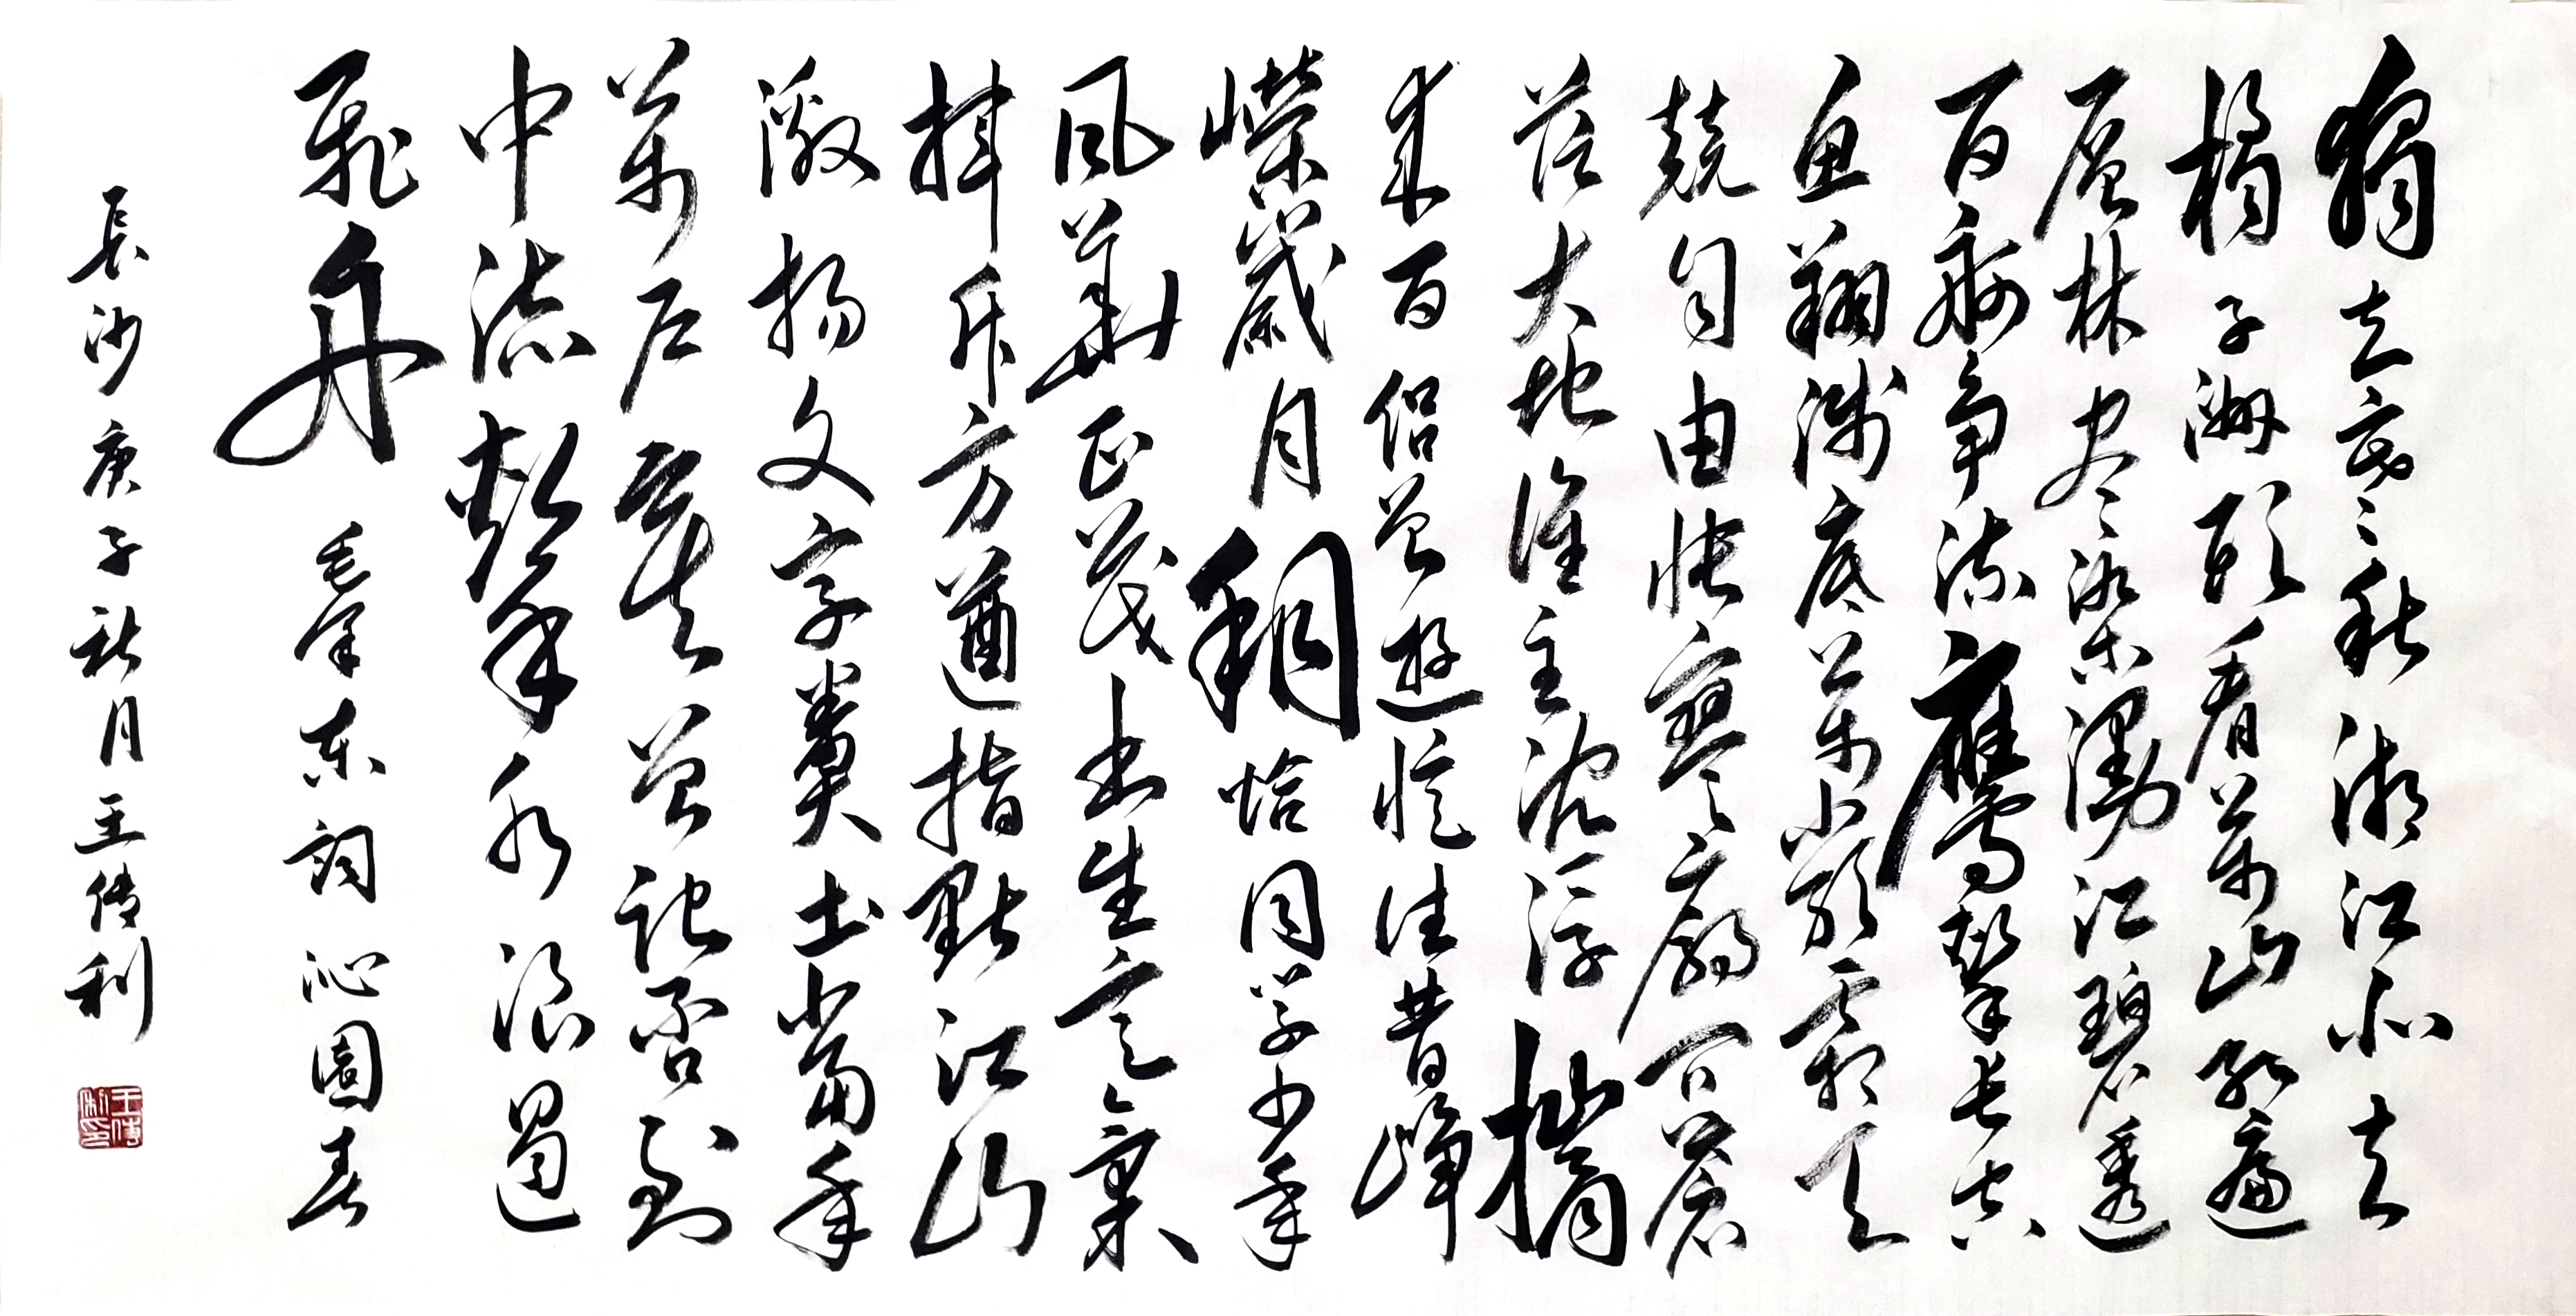 獨立寒秋湘江北去
橘子洲頭看萬山紅遍
層林尽染漫江碧透
百舸争流鷹擊長空
魚翔淺底萬類霜天
競自由悵寥廓問蒼
茫大地誰主沉浮攜
來百侣曾遊憶往昔崢
嶸歲月稠恰同學少年
風華正茂書生意氣
揮斥方遒指點江山
激揚文字糞土當年
萬户侯曾記否到
中流擊水浪遏
飛舟 毛澤東詞沁園春
長沙庚子秋月王传利
王傳利印